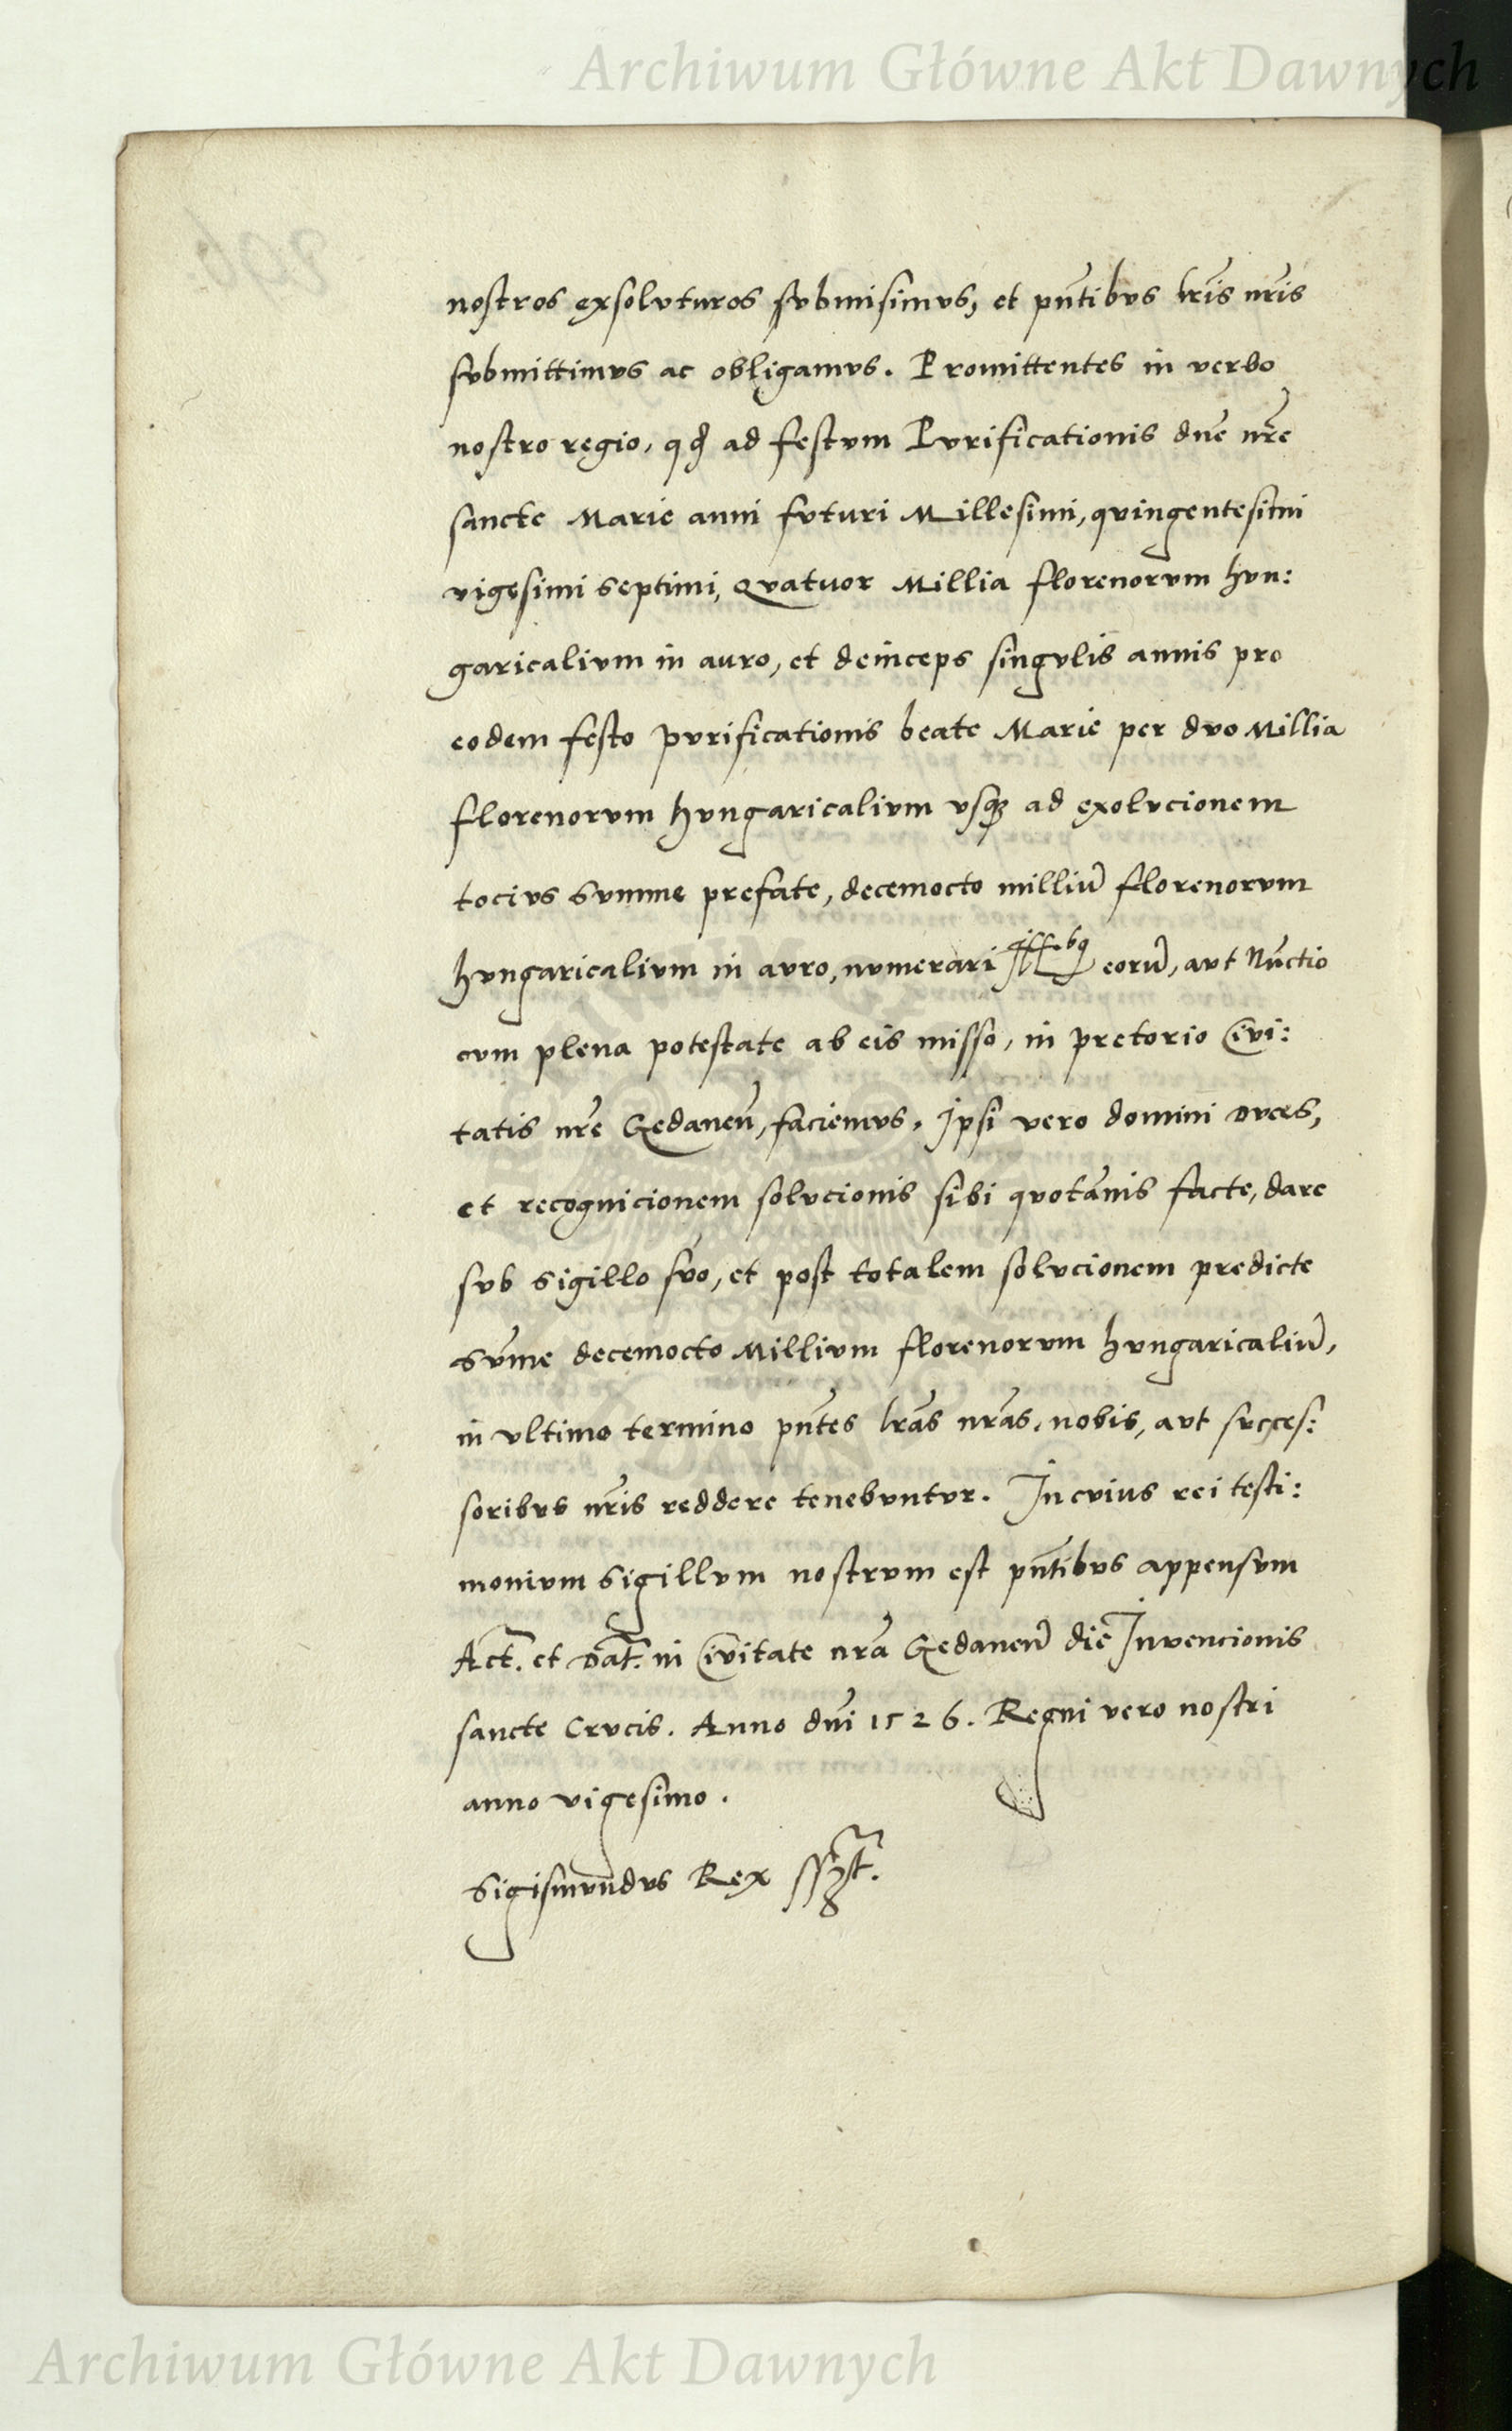 Archiwum Główne Akt Dawnych
nostros exsolvturos svbmisimvs, et pn̄tibvs lr̄is nr̄is
svbmittimvs ac obligamvs. Promittentes in verbo
nostro regio, qđ ad festvm Pvrificationis dn̄e nr̄e
sancte Marie anni fvturi Millesimi, qvingentesimi
vigesimi septimi, Qvatuor Millia florenorvm hvn:
garicalivm in auro, et deinceps singvlis annis pro
eodem festo pvrificationis beate Marie per dvo Millia
florenorvm hvngaricalivm vsqꝫ ad exolvcionem
tocivs svmme prefate, decemocto milliū florenorvm
hvngaricalivm in avro, nvmerari eorū, avt Nūctio
cvm plena potestate ab eis misso, in pretorio Civi:
tatis nr̄e Gedanen̄, faciemvs. Ipsi vero domini Dvces,
et recognicionem solvcionis sibi qvotān̄is facte, dare
svb sigillo svo, et post totalem solvcionem predicte
sv̄me decemocto Millivm florenorvm hvngaricaliū,
in vltimo termino pn̄tes lr̄as nr̄as, nobis, avt svcces:
soribvs nr̄is reddere tenebvntvr. In cvius rei testi:
monivm sigillvm nostrvm est pn̄tibvs appensvm
Act̄. et Dat̄. in Civitate nr̄a Gedanen̄ die Invencionis
sancte Crvcis. Anno dn̄i 1526. Regni vero nostri
anno vigesimo.
Sigismvndvs Rex sszt̄.
Archiwum Główne Akt Dawnych